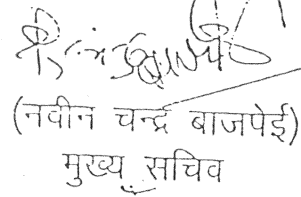 (नवीन चन्द्र बाजपेई)
मुख्य सचिव